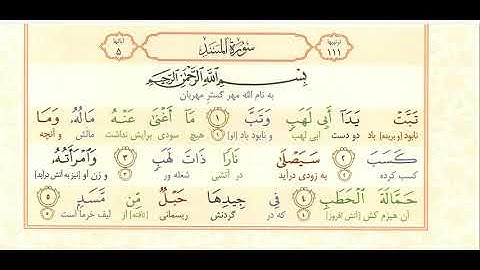 ترتیبها ١١١ سُورَةُ الْمَسَد آیاتها ٥
بِسْمِ اللَّهِ الرَّحْمَٰنِ الرَّحِيمِ
به نام الله مهر گستر مهربان
تَبَّتْ يَدَآ أَبِي لَهَبٍ وَتَبَّ ١ مَآ أَغْنَىٰ عَنْهُ مَالُهُ وَمَا
نابود [و بریده] باد دو دست ابی لهب و نابود باد [او] هیچ سودی برایش نداشت مالش و آنچه
كَسَبَ ٢ سَيَصْلَىٰ نَارًا ذَاتَ لَهَبٍ ٣ وَامْرَأَتُهُ
کسب کرده ٢ به زودی درآید در آتشی شعله ور ٣ و زن او [نیز به آتش درآید]
حَمَّالَةَ الْحَطَبِ ٤ فِي جِيدِهَا حَبْلٌ مِّن مَّسَدٍ ٥
آن هیزم کش [آتش افروز] ٤ که در گردنش ریسمانی [تافته] از لیف خرما است ٥